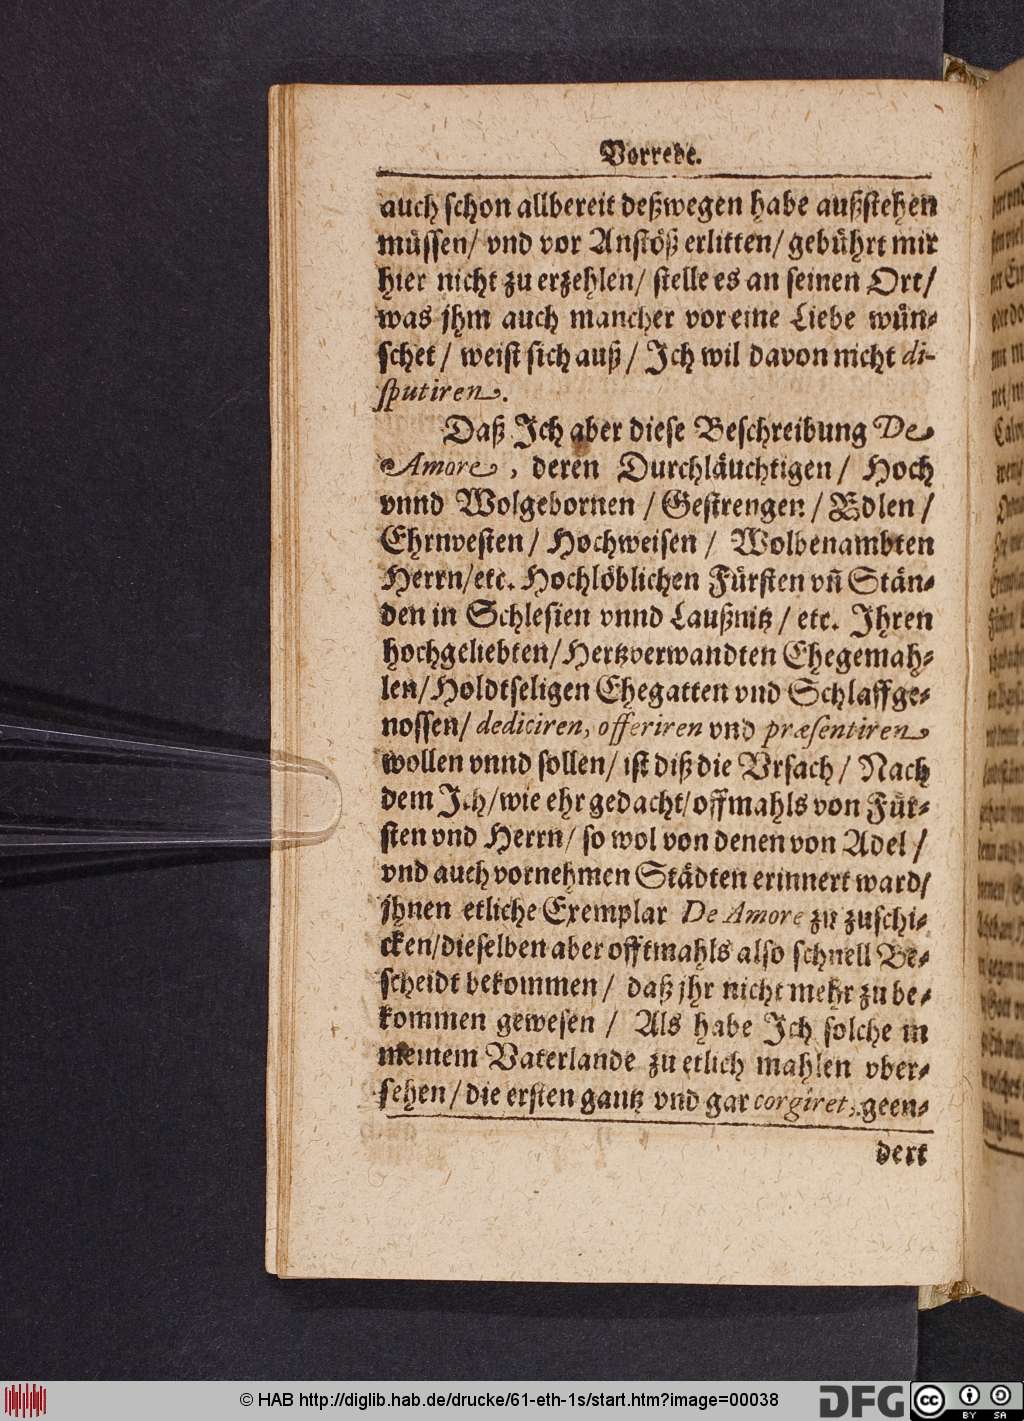 Vorrede.
auch schon allbereit deßwegen habe außstehen
müssen/ vnd vor Anstöß erlitten/ gebührt mir
hier nicht zu erzehlen/ stelle es an seinen Ort/
was jhm auch mancher vor eine Liebe wün-
schet/ weist sich auß/ Ich wil davon nicht di-
sputiren.
Daß Ich aber diese Beschreibung De
Amore, deren Durchläuchtigen/ Hoch
vnnd Wolgebornen/ Gestrengen/ Edlen/
Ehrnvesten/ Hochweisen/ Wolbenambten
Herrn/etc. Hochlöblichen Fürsten vñ Stän-
den in Schlesien vnnd Laußnitz/ etc. Ihren
hochgeliebten/Hertzverwandten Ehegemah-
len/Holdtseligen Ehegatten vnd Schlaffge-
nossen/ dediciren, offeriren vnd præsentiren
wollen vnnd sollen/ ist diß die Vrsach/ Nach
dem Ich/wie ehr gedacht/offmahls von Für-
sten vnd Herrn/ so wol von denen von Adel/
vnd auch vornehmen Städten erinnert ward/
jhnen etliche Exemplar De Amore zu zuschi-
cken/dieselben aber offtmahls also schnell Be-
scheidt bekommen/ daß jhr nicht mehr zu be-
kommen gewesen/ Als habe Ich solche in
meinem Vaterlande zu etlich mahlen vber-
sehen/ die ersten gantz vnd gar corgiret, geen-
dert
© HAB http://diglib.hab.de/drucke/61-eth-1s/start.htm?image=00038
DFG
cc
BY SA